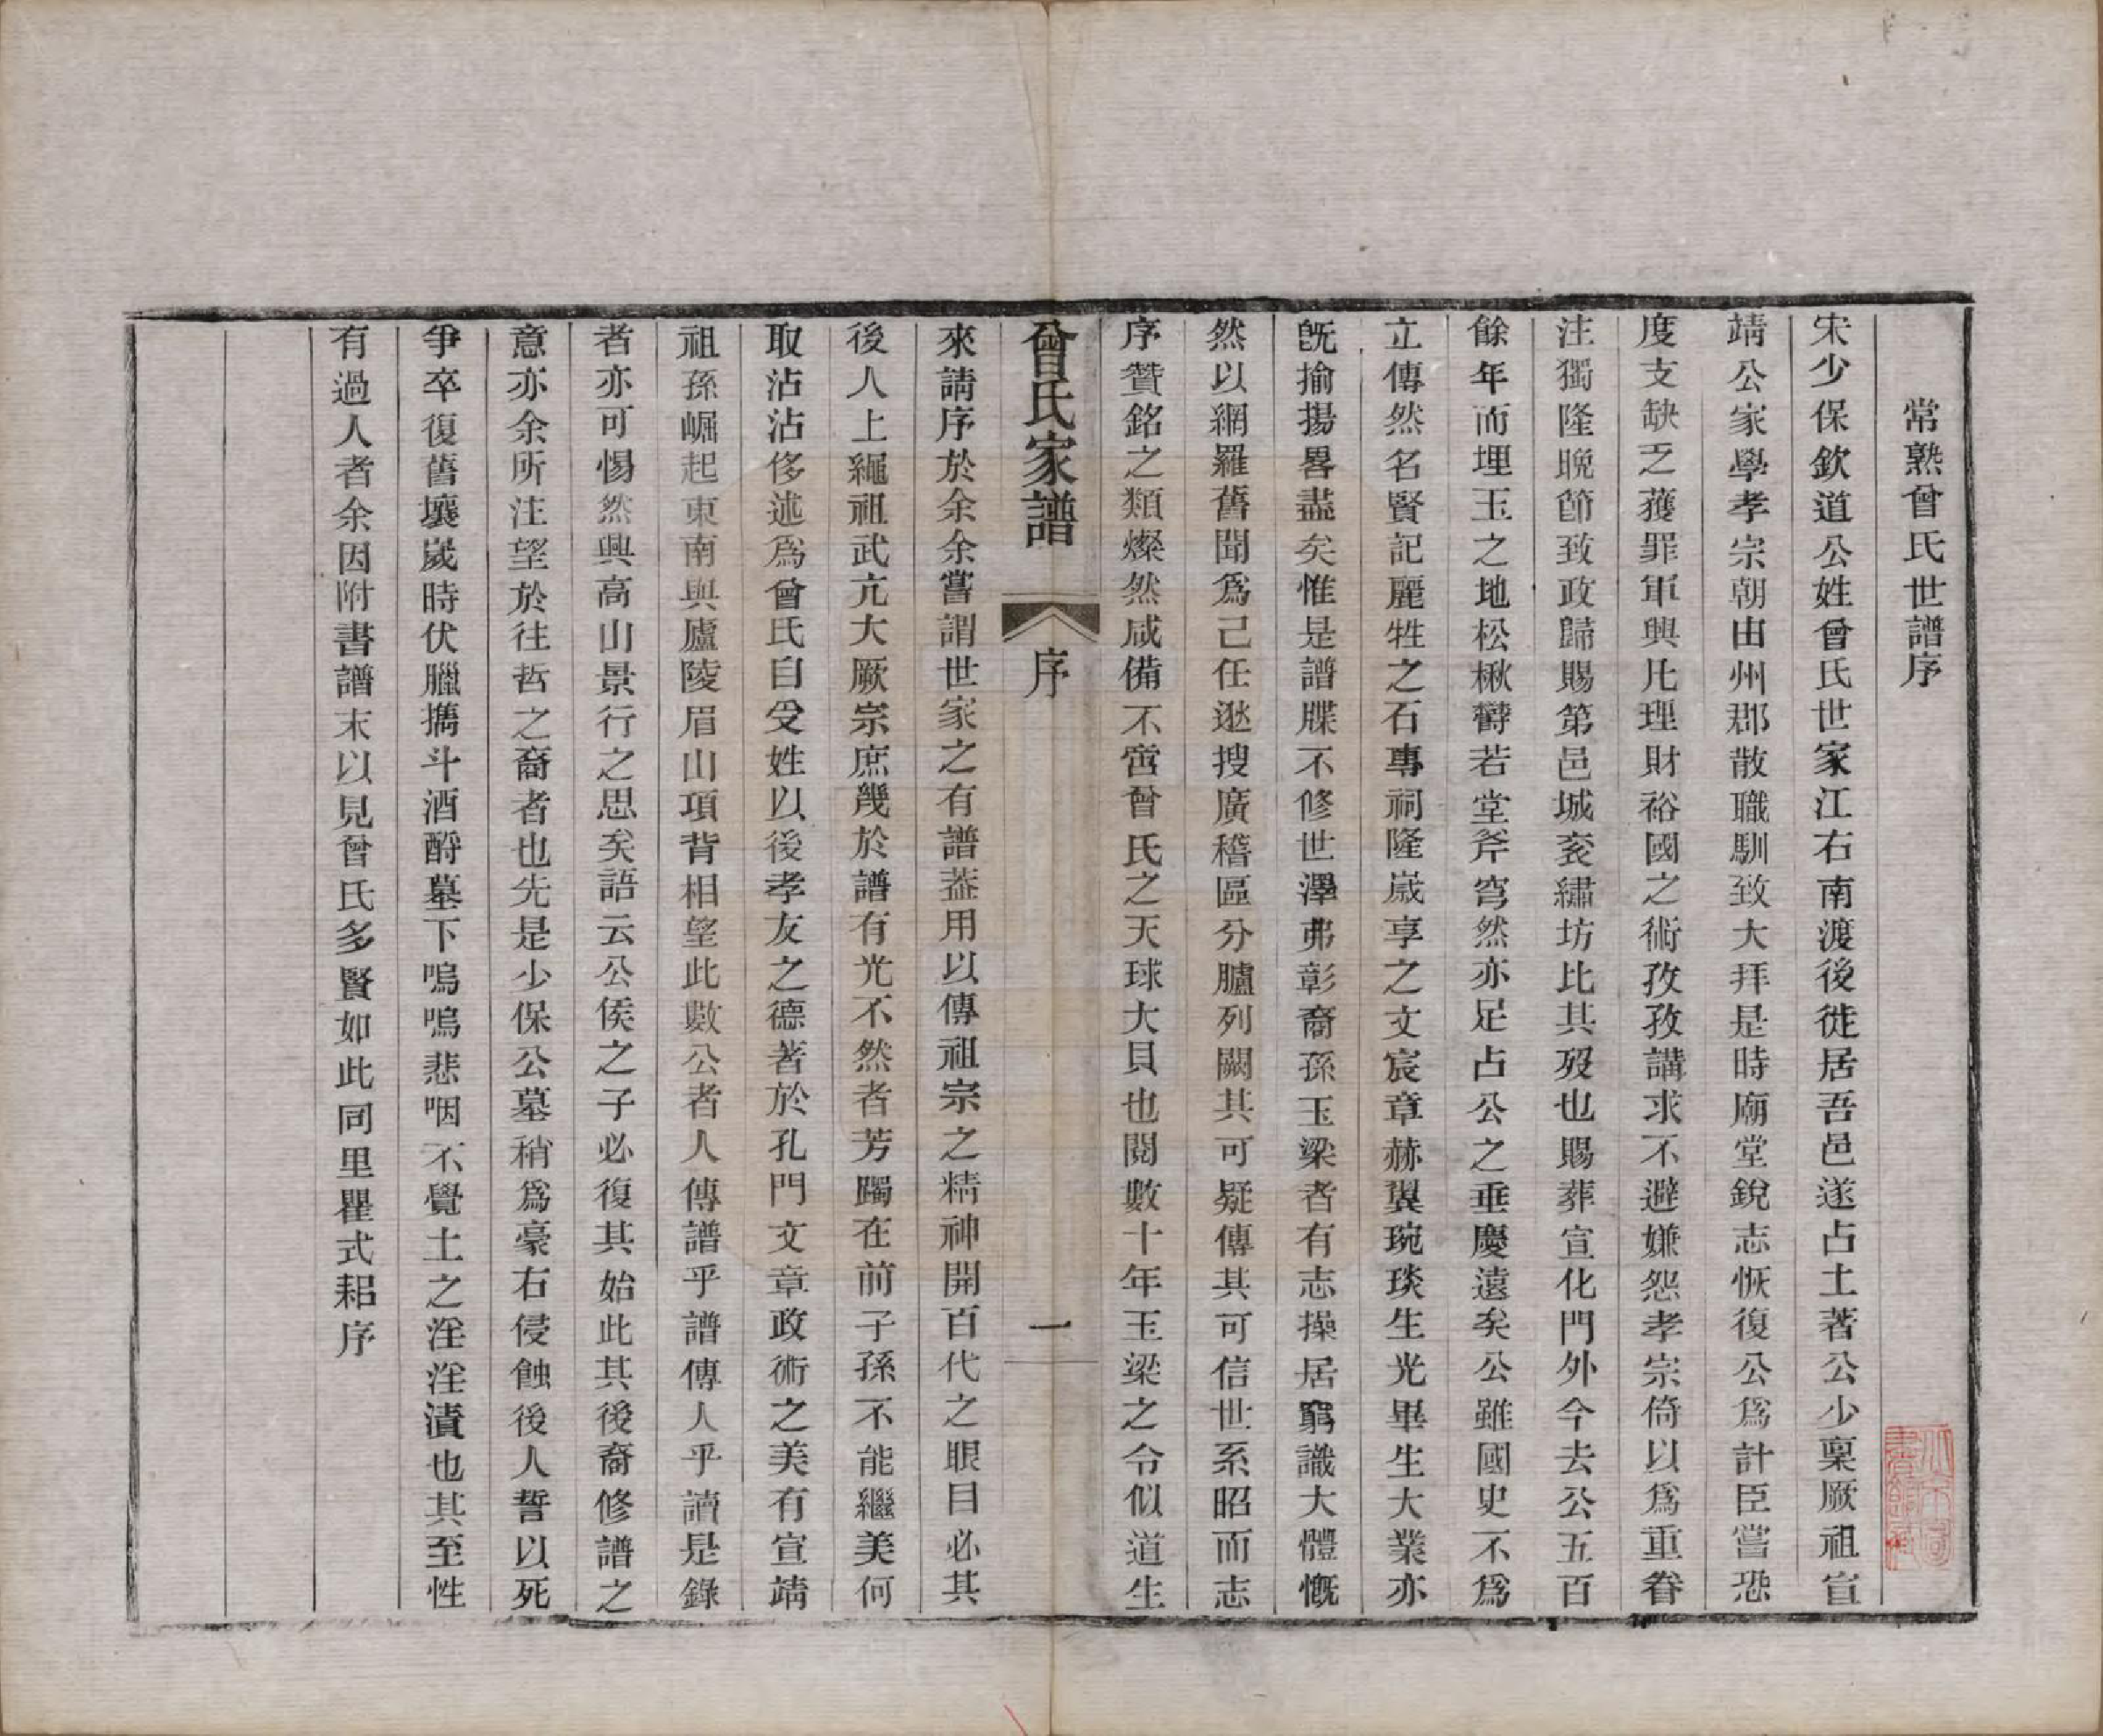 常熟曾氏世譜序
宋少保欽道公姓曾氏世家江右南渡後徙居吾邑遂占土著公少稟厥祖宣
靖公家學孝宗朝由州郡散職馴致大拜是時廟堂銳志恢復公爲計臣嘗恐
度支缺乏獲罪軍興凡理財裕國之術孜孜講求不避嫌怨孝宗倚以爲重眷
注獨隆晩節致政歸賜第邑城衮繡坊比其歿也賜葬宣化門外今去公五百
餘年而埋玉之地松楸欝若堂斧穹然亦足占公之垂慶遠矣公雖國史不爲
立傳然名賢記麗牲之石專祠隆歲享之文宸章赫翼琬琰生光畢生大業亦
旣揄揚畧盡矣惟是譜牒不修世澤弗彰裔孫玉梁者有志操居窮識大體慨
然以網羅舊聞爲己任逖搜廣稽區分臚列闕其可疑傳其可信世系昭而志
序贊銘之類燦然咸備不啻曾氏之天球大貝也閱數十年玉梁之令似道生
曾氏家譜
序
一
來請序於余余嘗謂世家之有譜葢用以傳祖宗之精神開百代之眼目必其
後人上繩祖武亢大厥宗庶幾於譜有光不然者芳躅在前子孫不能繼美何
取沾沾侈述爲曾氏自受姓以後孝友之德著於孔門文章政術之美有宣靖
祖孫崛起東南與廬陵眉山項背相望此數公者人傳譜乎譜傳人乎讀是錄
者亦可惕然興高山景行之思矣語云公侯之子必復其始此其後裔修譜之
意亦余所注望於往哲之裔者也先是少保公墓稍爲豪右侵蝕後人誓以死
爭卒復舊壤歲時伏臘攜斗酒酹墓下嗚嗚悲咽不覺土之淫淫漬也其至性
有過人者余因附書譜末以見曾氏多賢如此同里瞿式耜序